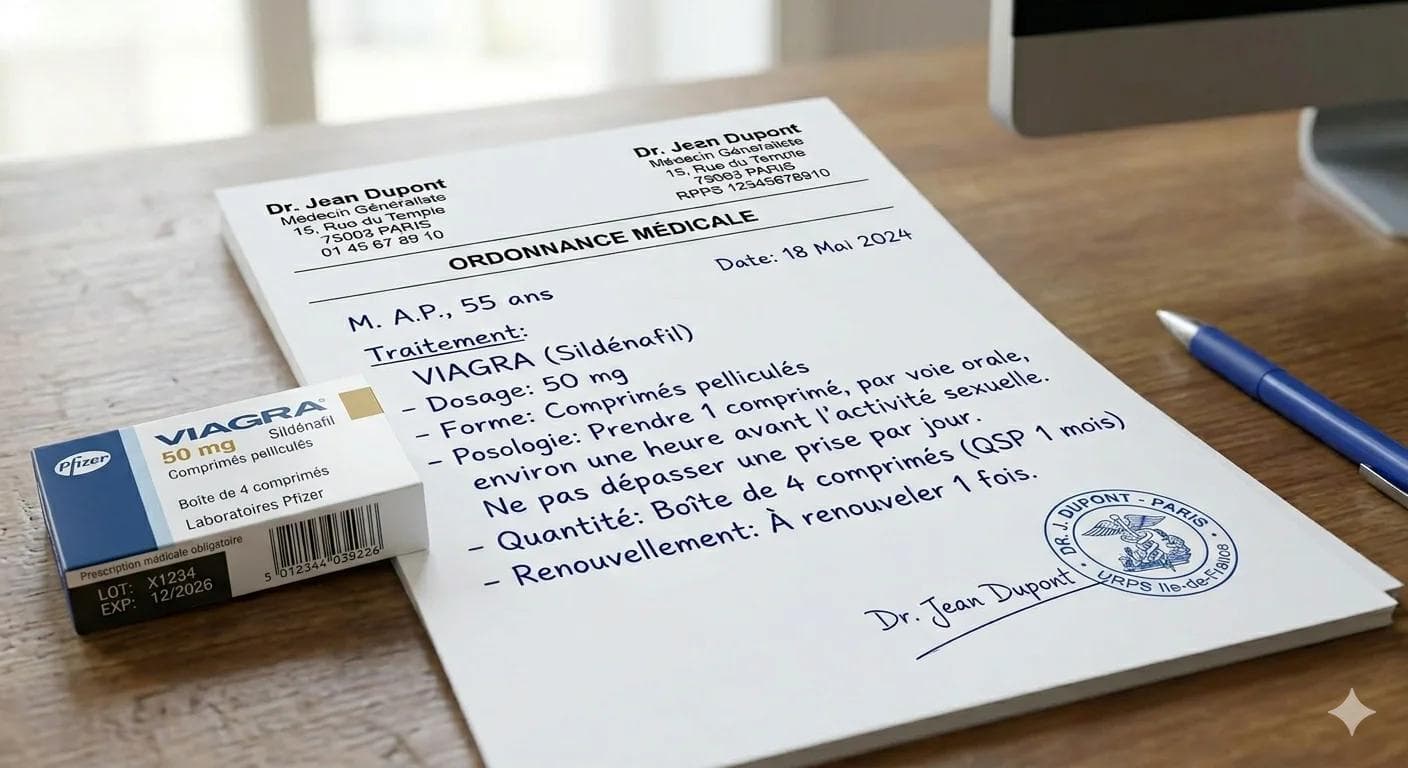 Dr. Jean Dupont
Medecin Généraliste
15, Rue du Temple
75003 PARIS
01 45 67 89 10
Dr. Jean Dupont
Médecin Généraliste
15, Rue du Temple
75003 PARIS
RPPS 12345678910
ORDONNANCE MÉDICALE
Date: 18 Mai 2024
M. A.P., 55 ans
Traitement:
VIAGRA (Sildénafil)
- Dosage: 50 mg
- Forme: Comprimés pelliculés
- Posologie: Prendre 1 comprimé, par voie orale,
environ une heure avant l'activité sexuelle.
Ne pas dépasser une prise par jour.
- Quantité: Boîte de 4 comprimés (QSP 1 mois)
- Renouvellement: À renouveler 1 fois.
Dr. Jean Dupont
DR. J. DUPONT - PARIS
URPS Ile-de-France
Pfizer
VIAGRA®
50 mg Sildénafil
Comprimés pelliculés
Boîte de 4 comprimés
Laboratoires Pfizer
Prescription médicale obligatoire
LOT: X1234
EXP: 12/2026
5 012344 039226